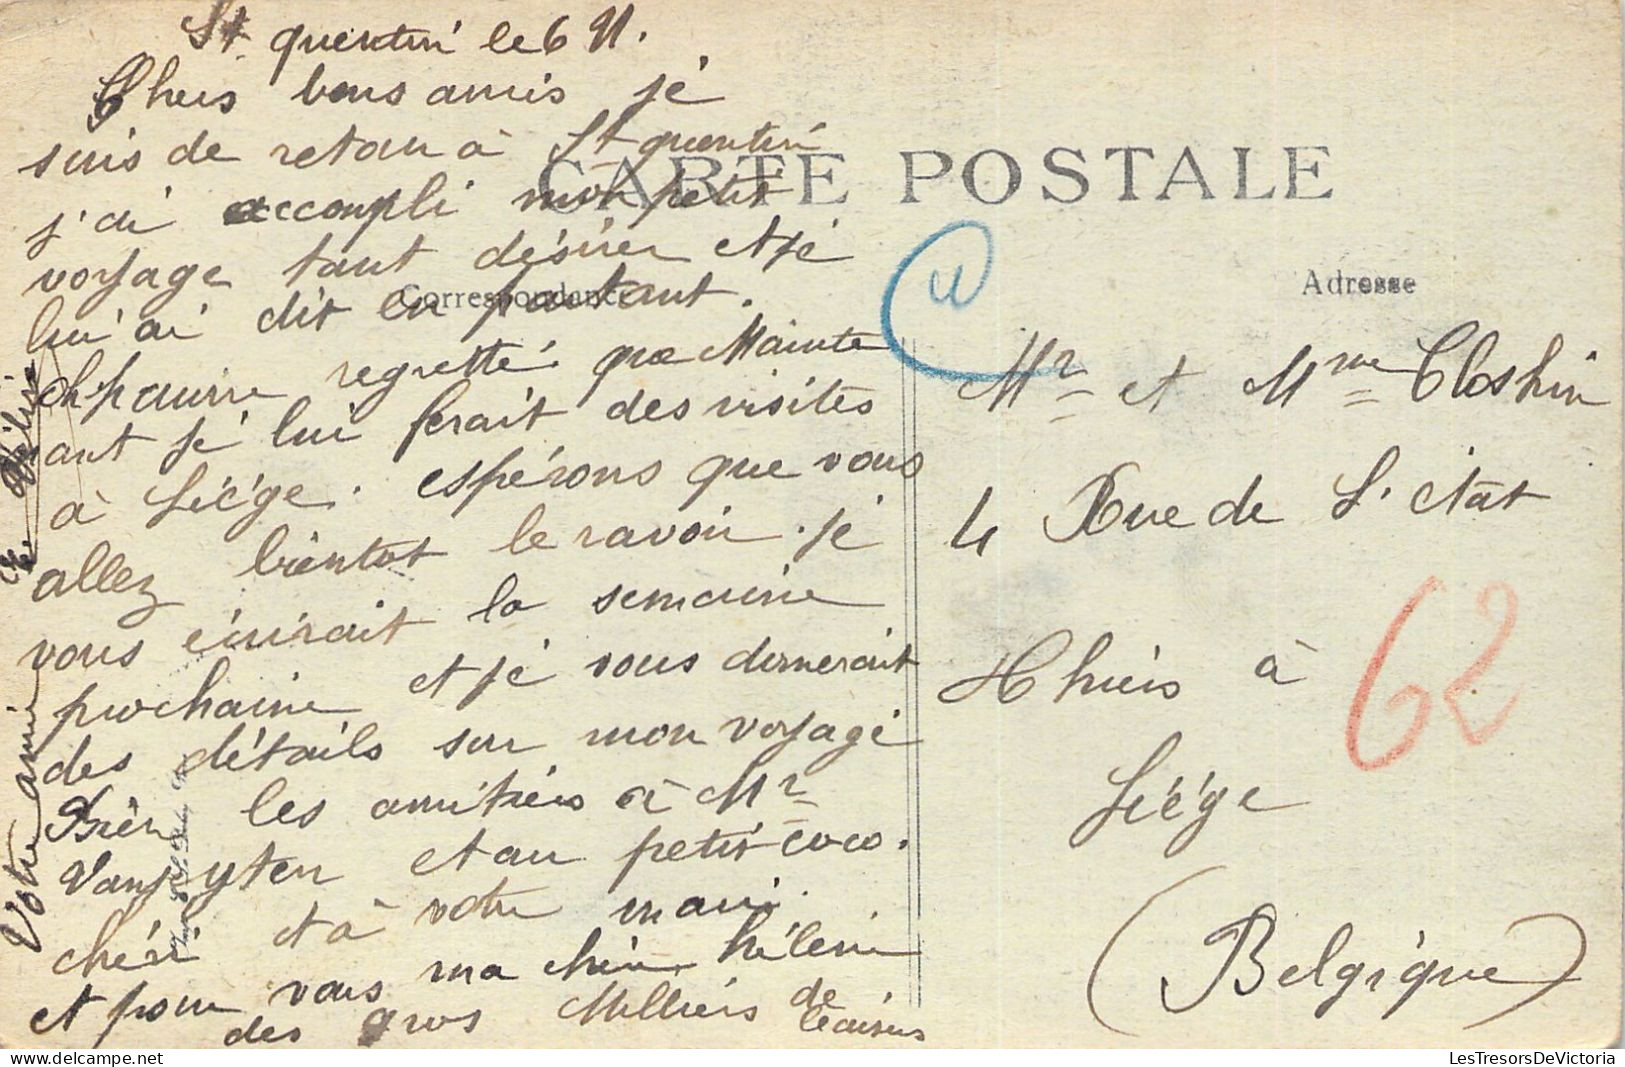 St quentin le 6 91.
Chers bons amis je
suis de retour à St quentin
j'ai accompli mon petit
voyage tant désirer et je
lui ai dit en partant.
regretté que Mainte
ant je lui ferait des visites
à Liége. espérons que vous
allez bientot le ravoir. je
vous écrirait la semaine
prochaine et je vous donnerait
des détails sur mon voyage
Bièn les amitiés à Mr
et au petit coco.
chéri et à votre mari
et pour vous ma chère hélène
des gros Milliers de
Votre amie
CARTE POSTALE
Correspondance
Adresse
Mr et Mme Closhin
4 Rue de L'état
Thiers à
Liége
(Belgique)
62
LesTresorsDeVictoria